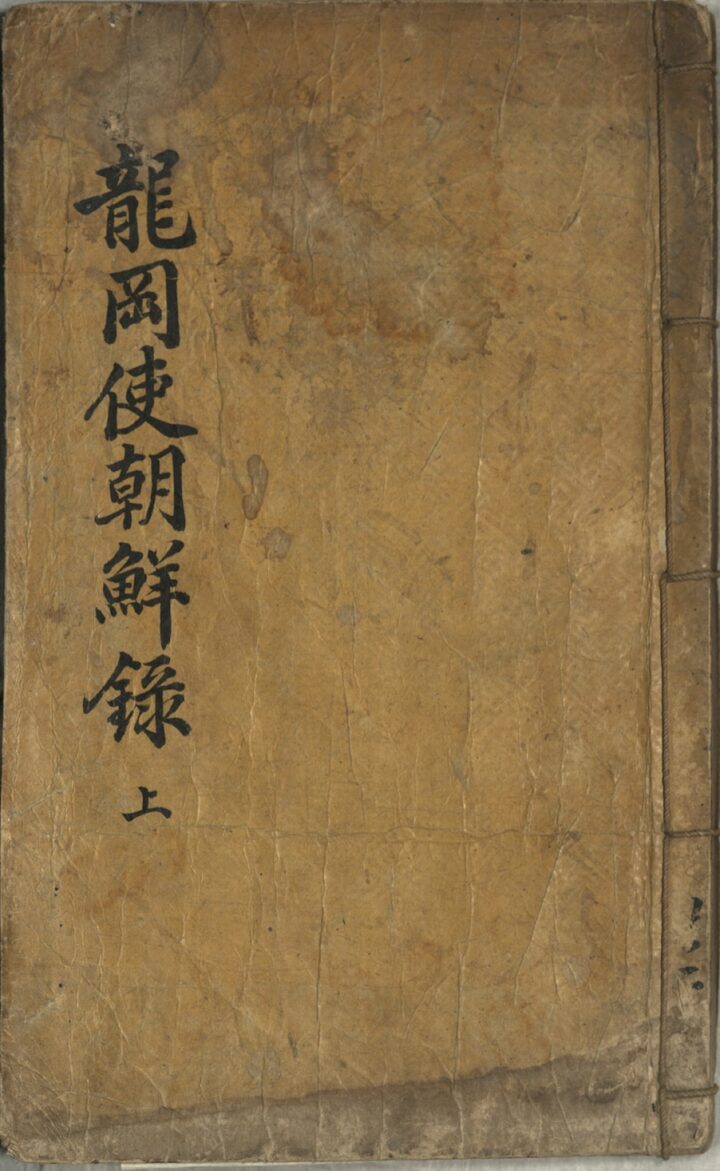 龍岡使朝鮮錄 上